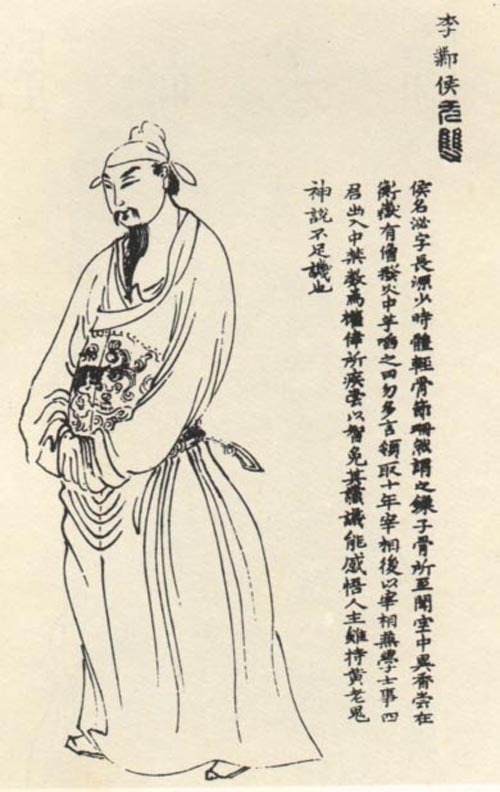 李鄴侯无雙
侯名泌字長源少時體輕骨節珊然謂之鏁子骨所至聞空中異香嘗在
衡嶽有僧撥火中芋啗之曰勿多言領取十年宰相後以宰相兼學士事四
君出入中禁數為權倖所疾嘗以智免其讜議能感悟人主雖持黄老鬼
神說不足譏也